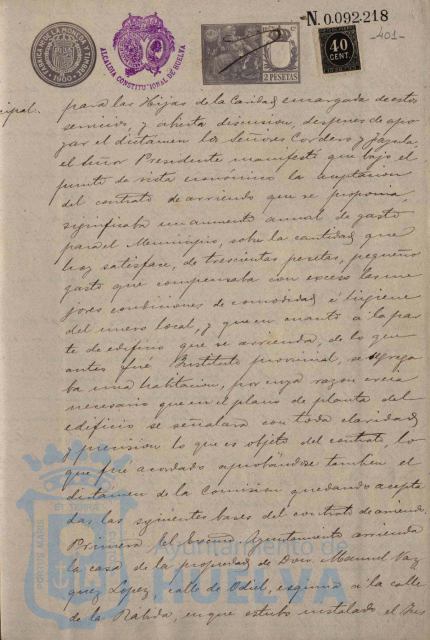 N. 0.092.218
-401-
FABRICA DE LA MONEDA Y TIMBRE
1900
ALCALDIA CONSTITUCIONAL DE HUELVA
2 PESETAS
40
CENT.
cipal.
para las Hijas de la Caridad encargada de estos
servicios, y abierta discusion, despues de apo-
yar el dictamen los Señores Cordero y Jagada,
el Señor Presidente manifestó que bajo el
punto de vista económico la aceptacion
del contrato de arriendo que se proponia,
significaba un aumento anual de gasto
para el Municipio, sobre la cantidad que
hoy satisface, de trescientas pesetas, pequeño
gasto que compensaba con exceso las me
jores condiciones de comodidad é higiene
del nuevo local, y que en cuanto á la par
te de edificio que se arrienda, de lo que
antes fué Instituto provincial, se agrega
ba una habitacion, por cuya razon creia
necesario que en el plano de planta del
edificio se señalara con toda claridad
y precision lo que es objeto del contrato, lo
que fué acordado aprobándose tambien el
dictamen de la Comision quedando acepta
das las siguientes bases del contrato de arriendo.
Primera El Excmo. Ayuntamiento arrienda
la casa de la propiedad de Don Manuel Vaz
quez Lopez, calle de Odiel, esquina á la calle
de la Rabida, en que estubo instalado el Ins
PORTUS MARIS
Ayuntamiento de
HUELVA